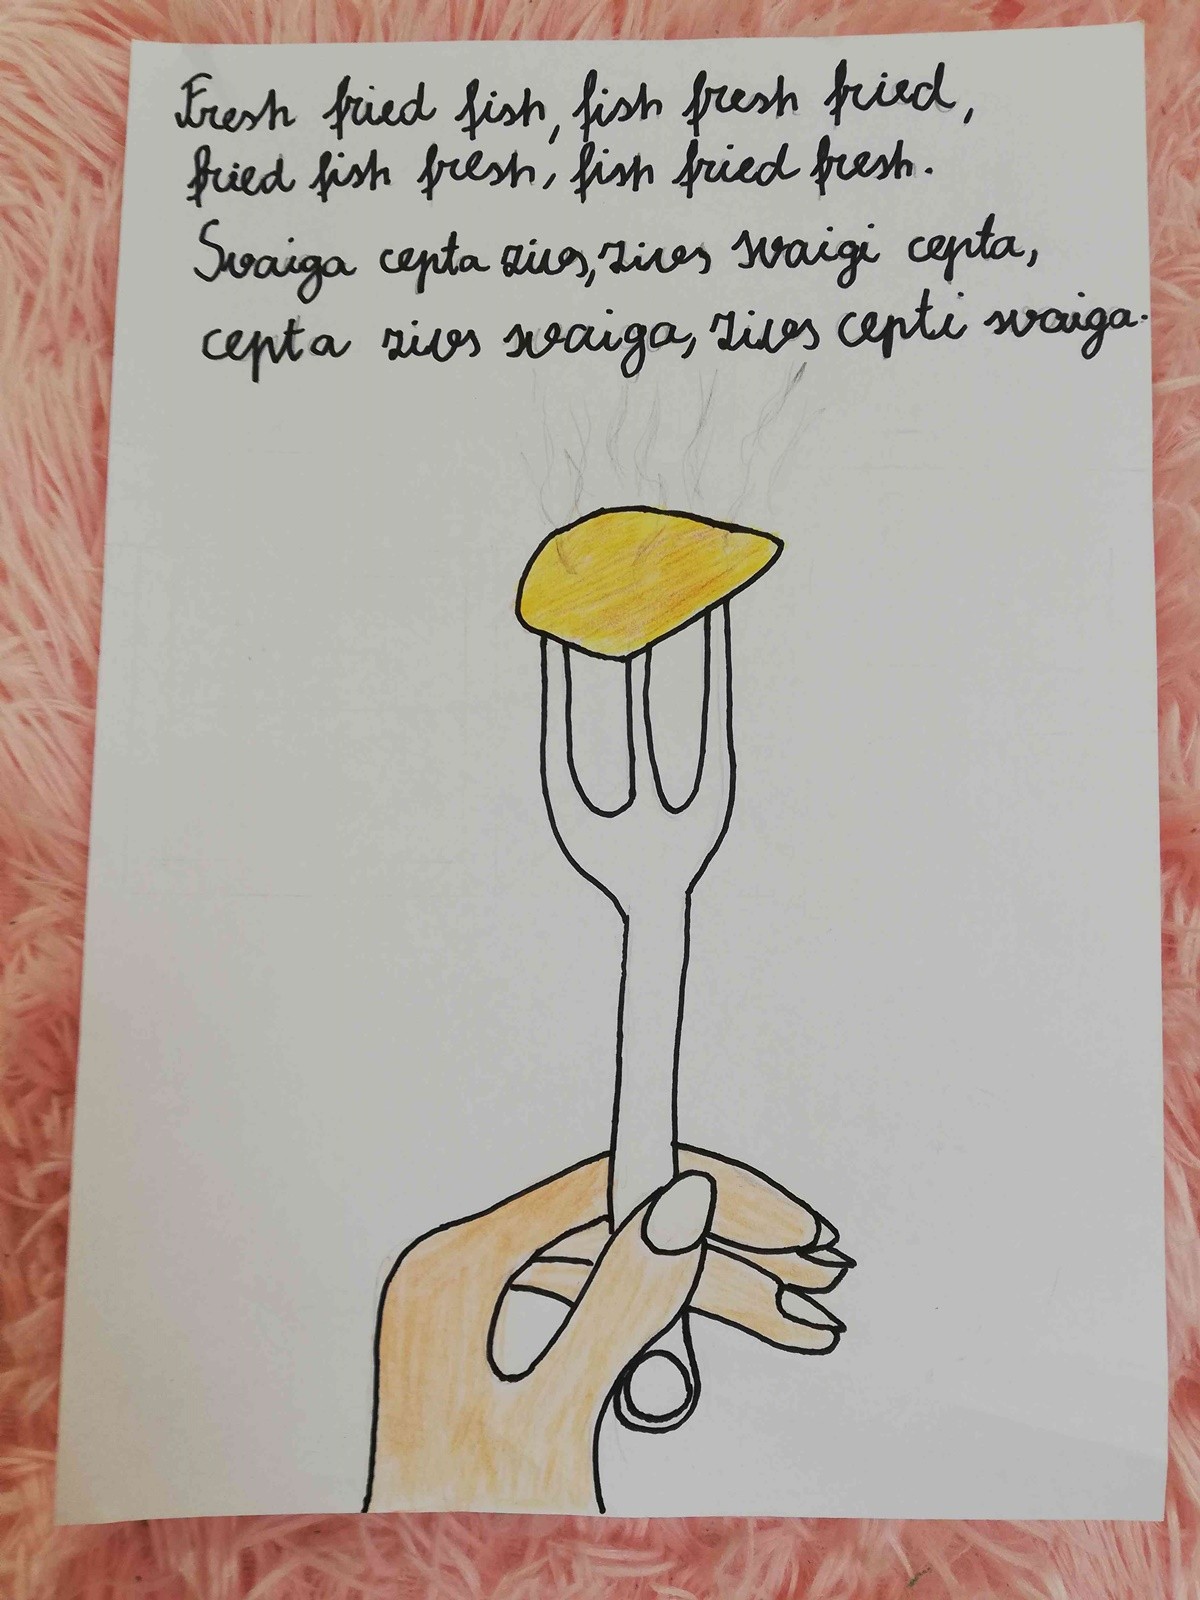 Fresh fried fish, fish fresh fried,
fried fish fresh, fish fried fresh.
Svaiga cepta zivs, zivs svaigi cepta,
cepta zivs svaiga, zivs cepti svaiga.